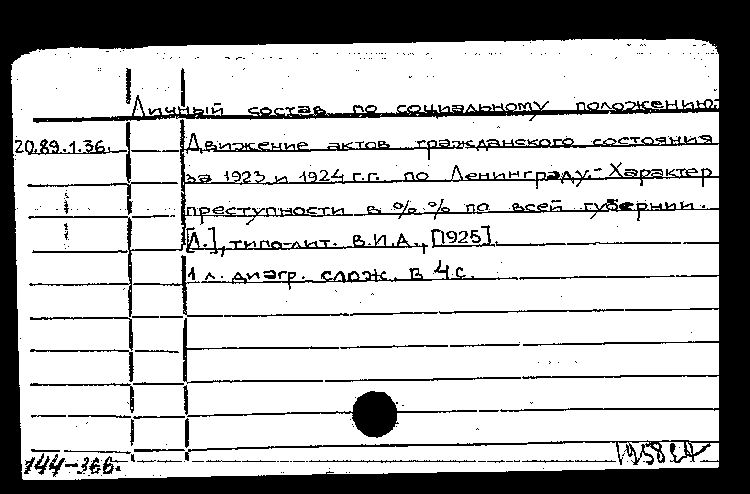 Личный состав по социальному положению.
20.89.1.36. Движение актов гражданского состояния
за 1923 и 1924 г.г. по Ленинграду.- Характер
преступности в %% по всей губернии.
[Л.], типо-лит. В.И.А., [1925].
1 л. диагр. слож. в 4 с.
144-366.